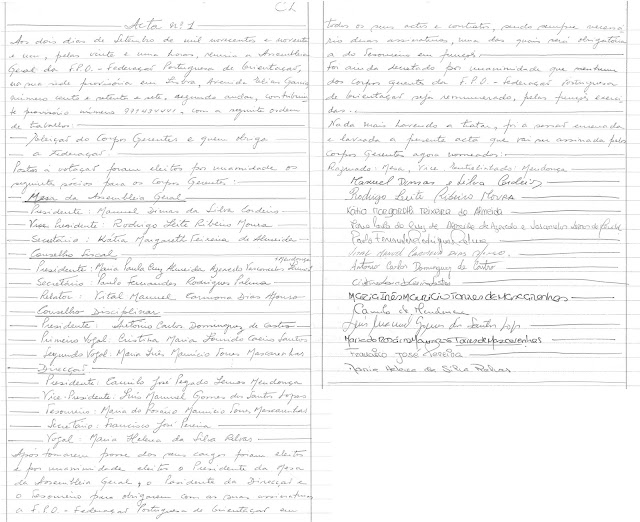 Acta nº 1
Aos dois dias de Setembro de mil novecentos e noventa
e um, pelas vinte e uma horas, reuniu a Assembleia
Geral da F.P.O. - Federação Portuguesa de Orientação,
na sua sede provisória em Lisboa, Avenida
número cento e setenta e sete, segundo andar, contribuin-
te provisório número com a seguinte ordem
de trabalhos:
Eleição do Corpos Gerentes e quem obriga
a Federação
Postos à votação foram eleitos por unanimidade os
seguintes sócios para os Corpos Gerentes:
Mesa da Assembleia Geral
Presidente: Manuel da Silva Cordeiro
Vice Presidente: Rodrigo Leite Ribeiro Moura
Secretário: Katia Margarete Teixeira de Almeida
Conselho Fiscal
Presidente: Maria Paula Almeida Azevedo
Secretário: Paulo Fernandes Rodrigues Palma
Relator: Vital Manuel Dias
Conselho Disciplinar
Presidente: António Carlos Domingues de Castro
Primeiro Vogal: Cristina Maria Santos
Segundo Vogal: Maria Inês Maurício Torres Mascarenhas
Direcção
Presidente: Camilo José Lemos Mendonça
Vice-Presidente: Luís Manuel Gomes dos Santos Lopes
Tesoureiro: Maria do Rosário Maurício Torres Mascarenhas
Secretário: Francisco José Pereira
Vogal: Maria Helena da Silva
Após tomarem posse dos seus cargos foram eleitos
e por unanimidade eleitos o Presidente da Mesa
da Assembleia Geral, o Presidente da Direcção e
o Tesoureiro para obrigarem com as suas assinaturas
a F.P.O. - Federação Portuguesa de Orientação em
todos os seus actos e contratos, sendo sempre necessá-
rio duas assinaturas, uma das quais será obrigatória
a do Tesoureiro em funções.
Foi ainda decretado por unanimidade que nenhum
dos corpos Gerentes da F.P.O. - Federação Portuguesa
de Orientação seja remunerado, pelas funções exerci-
das.
Nada mais havendo a tratar, foi a sessão encerrada
e lavrada a presente acta que vai ser assinada pelos
Corpos Gerentes agora nomeados:
Rasurado: Mesa, Vice Mendonça
Manuel da Silva Cordeiro
Rodrigo Leite Ribeiro Moura
Katia Margarete Teixeira de Almeida
Maria Paula de Almeida de Azevedo
Paulo Fernandes Rodrigues Palma
António Carlos Domingues de Castro
Maria Inês Maurício Torres de Mascarenhas
Camilo de Mendonça
Luís Manuel Gomes dos Santos Lopes
Maria do Rosário Maurício Torres de Mascarenhas
Francisco José Pereira
Maria Helena da Silva